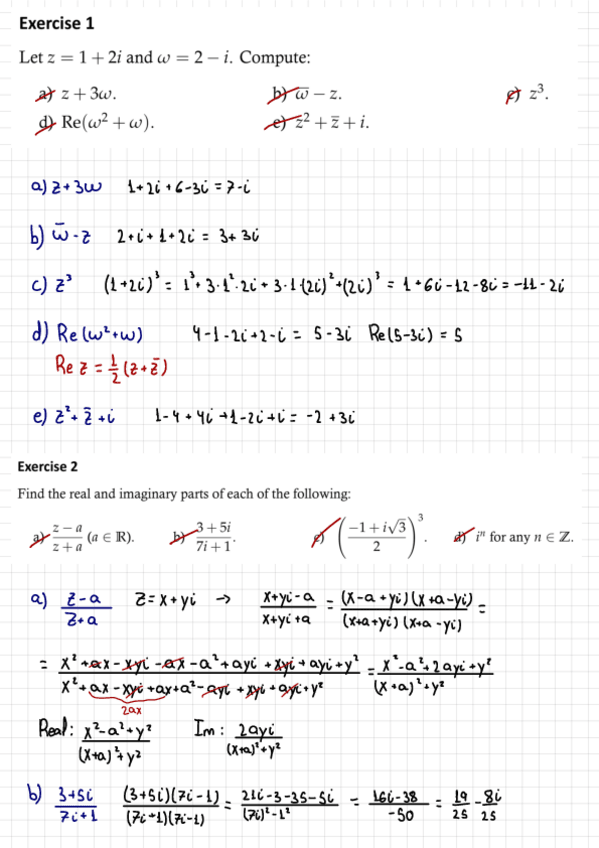 Exercise 1
Let z = 1 + 2i and ω = 2 − i. Compute:
a) z + 3ω. b) ω̅ − z. c) z³.
d) Re(ω² + ω). e) z² + z̅ + i.
a) z+3w 1+2i+6-3i = 7-i
b) w̅-z 2+i+1+2i = 3+3i
c) z³ (1+2i)³ = 1³+3·1²·2i+3·1·(2i)²+(2i)³ = 1+6i-12-8i = -11-2i
d) Re(w²+w) 4-1-2i+2-i = 5-3i Re(5-3i) = 5
Re z = 1/2 (z+z̅)
e) z²+z̅+i 1-4+4i+1-2i+i = -2+3i
Exercise 2
Find the real and imaginary parts of each of the following:
a) (z − a)/(z + a) (a ∈ ℝ). b) (3 + 5i)/(7i + 1). c) ((−1 + i√3)/2)³. d) iⁿ for any n ∈ ℤ.
a) (z-a)/(z+a) z=x+yi → (x+yi-a)/(x+yi+a) = ((x-a+yi)(x+a-yi))/((x+a+yi)(x+a-yi)) =
= (x²+ax-xyi-ax-a²+ayi+xyi+ayi+y²)/(x²+ax-xyi+ax+a²-ayi+xyi+ayi+y²) = (x²-a²+2ayi+y²)/((x+a)²+y²)
2ax
Real: (x²-a²+y²)/((x+a)²+y²) Im: (2ayi)/((x+a)²+y²)
b) (3+5i)/(7i+1) ((3+5i)(7i-1))/((7i+1)(7i-1)) = (21i-3-35-5i)/((7i)²-1²) = (16i-38)/(-50) = 19/25 - 8i/25